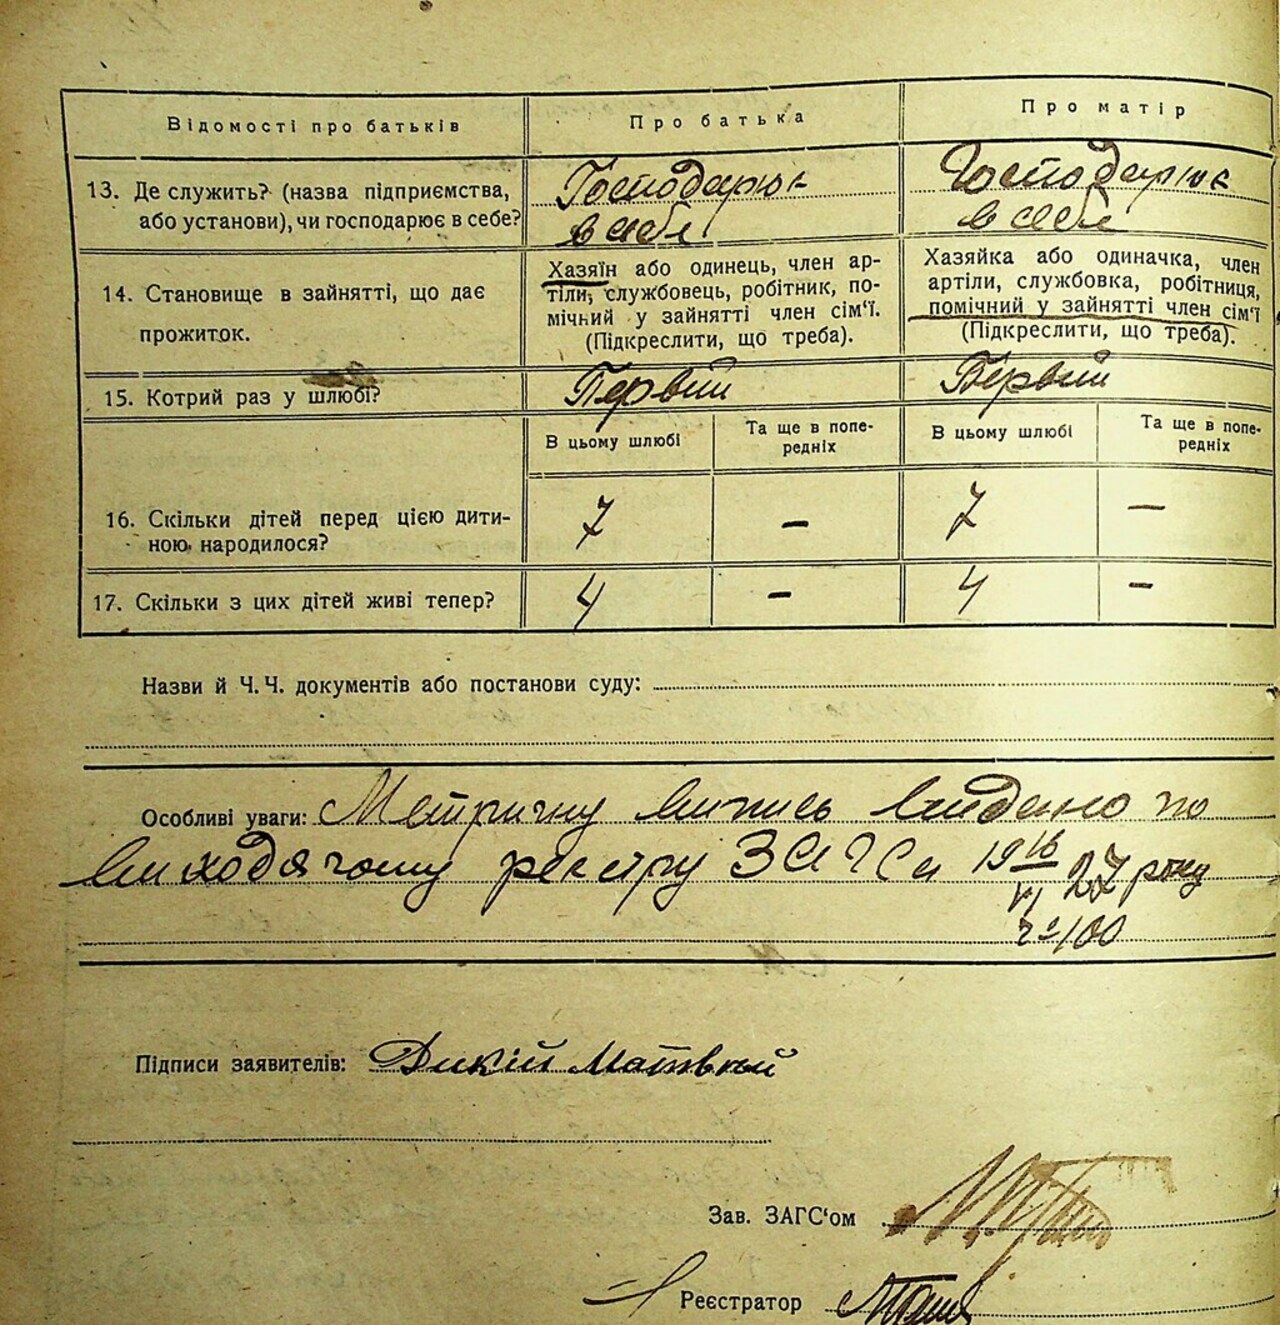 Відомості про батьків
Про батька
Про матір
13. Де служить? (назва підприємства,
або установи), чи господарює в себе?
Господарює
в себе
Господарює
в себе
14. Становище в зайнятті, що дає
прожиток.
Хазяїн або одинець, член ар-
тіли, службовець, робітник, по-
мічний у зайнятті член сім'ї.
(Підкреслити, що треба).
Хазяйка або одиначка, член
артіли, службовка, робітниця,
помічний у зайнятті член сім'ї
(Підкреслити, що треба).
15. Котрий раз у шлюбі?
Первий
Первий
В цьому шлюбі
Та ще в попе-
редніх
В цьому шлюбі
Та ще в попе-
редніх
16. Скільки дітей перед цією дити-
ною народилося?
7
–
7
–
17. Скільки з цих дітей живі тепер?
4
–
4
–
Назви й Ч.Ч. документів або постанови суду:
Особливі уваги: Метричну випись видано по
виходячому реєстру ЗАГСа 19 16/VI 27 року
№ 100
Підписи заявителів: Дикій Матвъй
Зав. ЗАГС'ом
Реєстратор